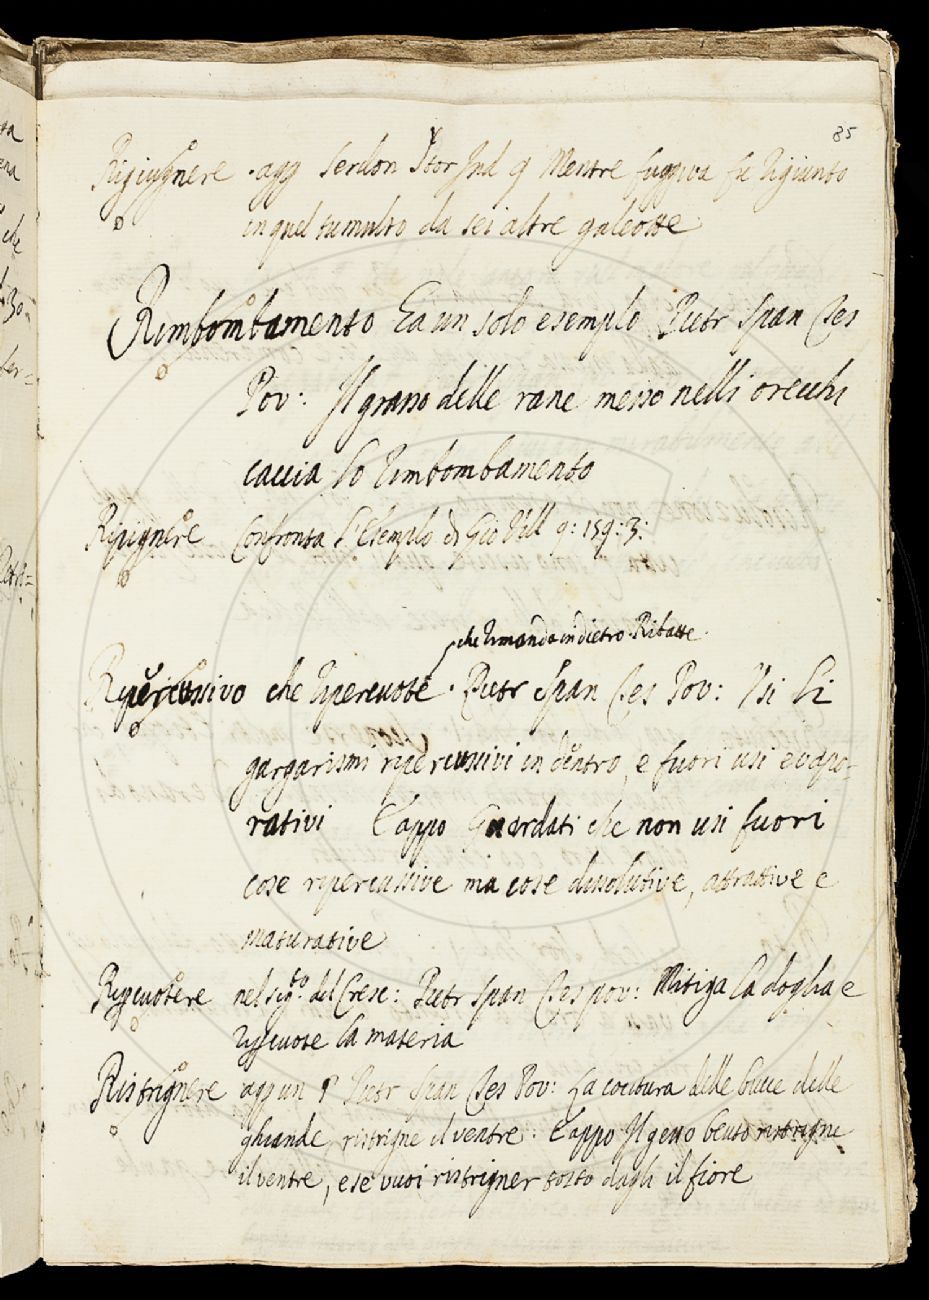 85
Rigiugnere . agg Serdon Stor Ind 9 Mentre fuggiva fu rigiunto
in quel tumulto da sei altre galeotte
Rimbombamento Ha un solo esempio Pietr Span Tes
Pov: Il grasso delle rane messo nelli orecchi
caccia lo rimbombamento
Ripignere Confronta l'Esempio di Gio Vill 9: 159: 3:
che rimanda indietro. Ribatte.
Ripercussivo che ripercuote . Pietr Span Tes Pov: Usi li
gargarismi ripercussivi in dentro, e fuori usi evapo-
rativi E appo Guardati che non usi fuori
cose ripercussive ma cose dissolutive, attrattive e
maturative
Ripercuotere nel sig.to del Cresc: Pietr Span Tes pov: Mitiga la doglia e
ripercuote la materia
Ristrignere agg un Pietr Span Tes Pov: La cocitura delle bucce delle
ghiande ristrigne il ventre. E appo Il gesso beuto ristrigne
il ventre, e se vuoi ristrigner tosto dagli il fiore